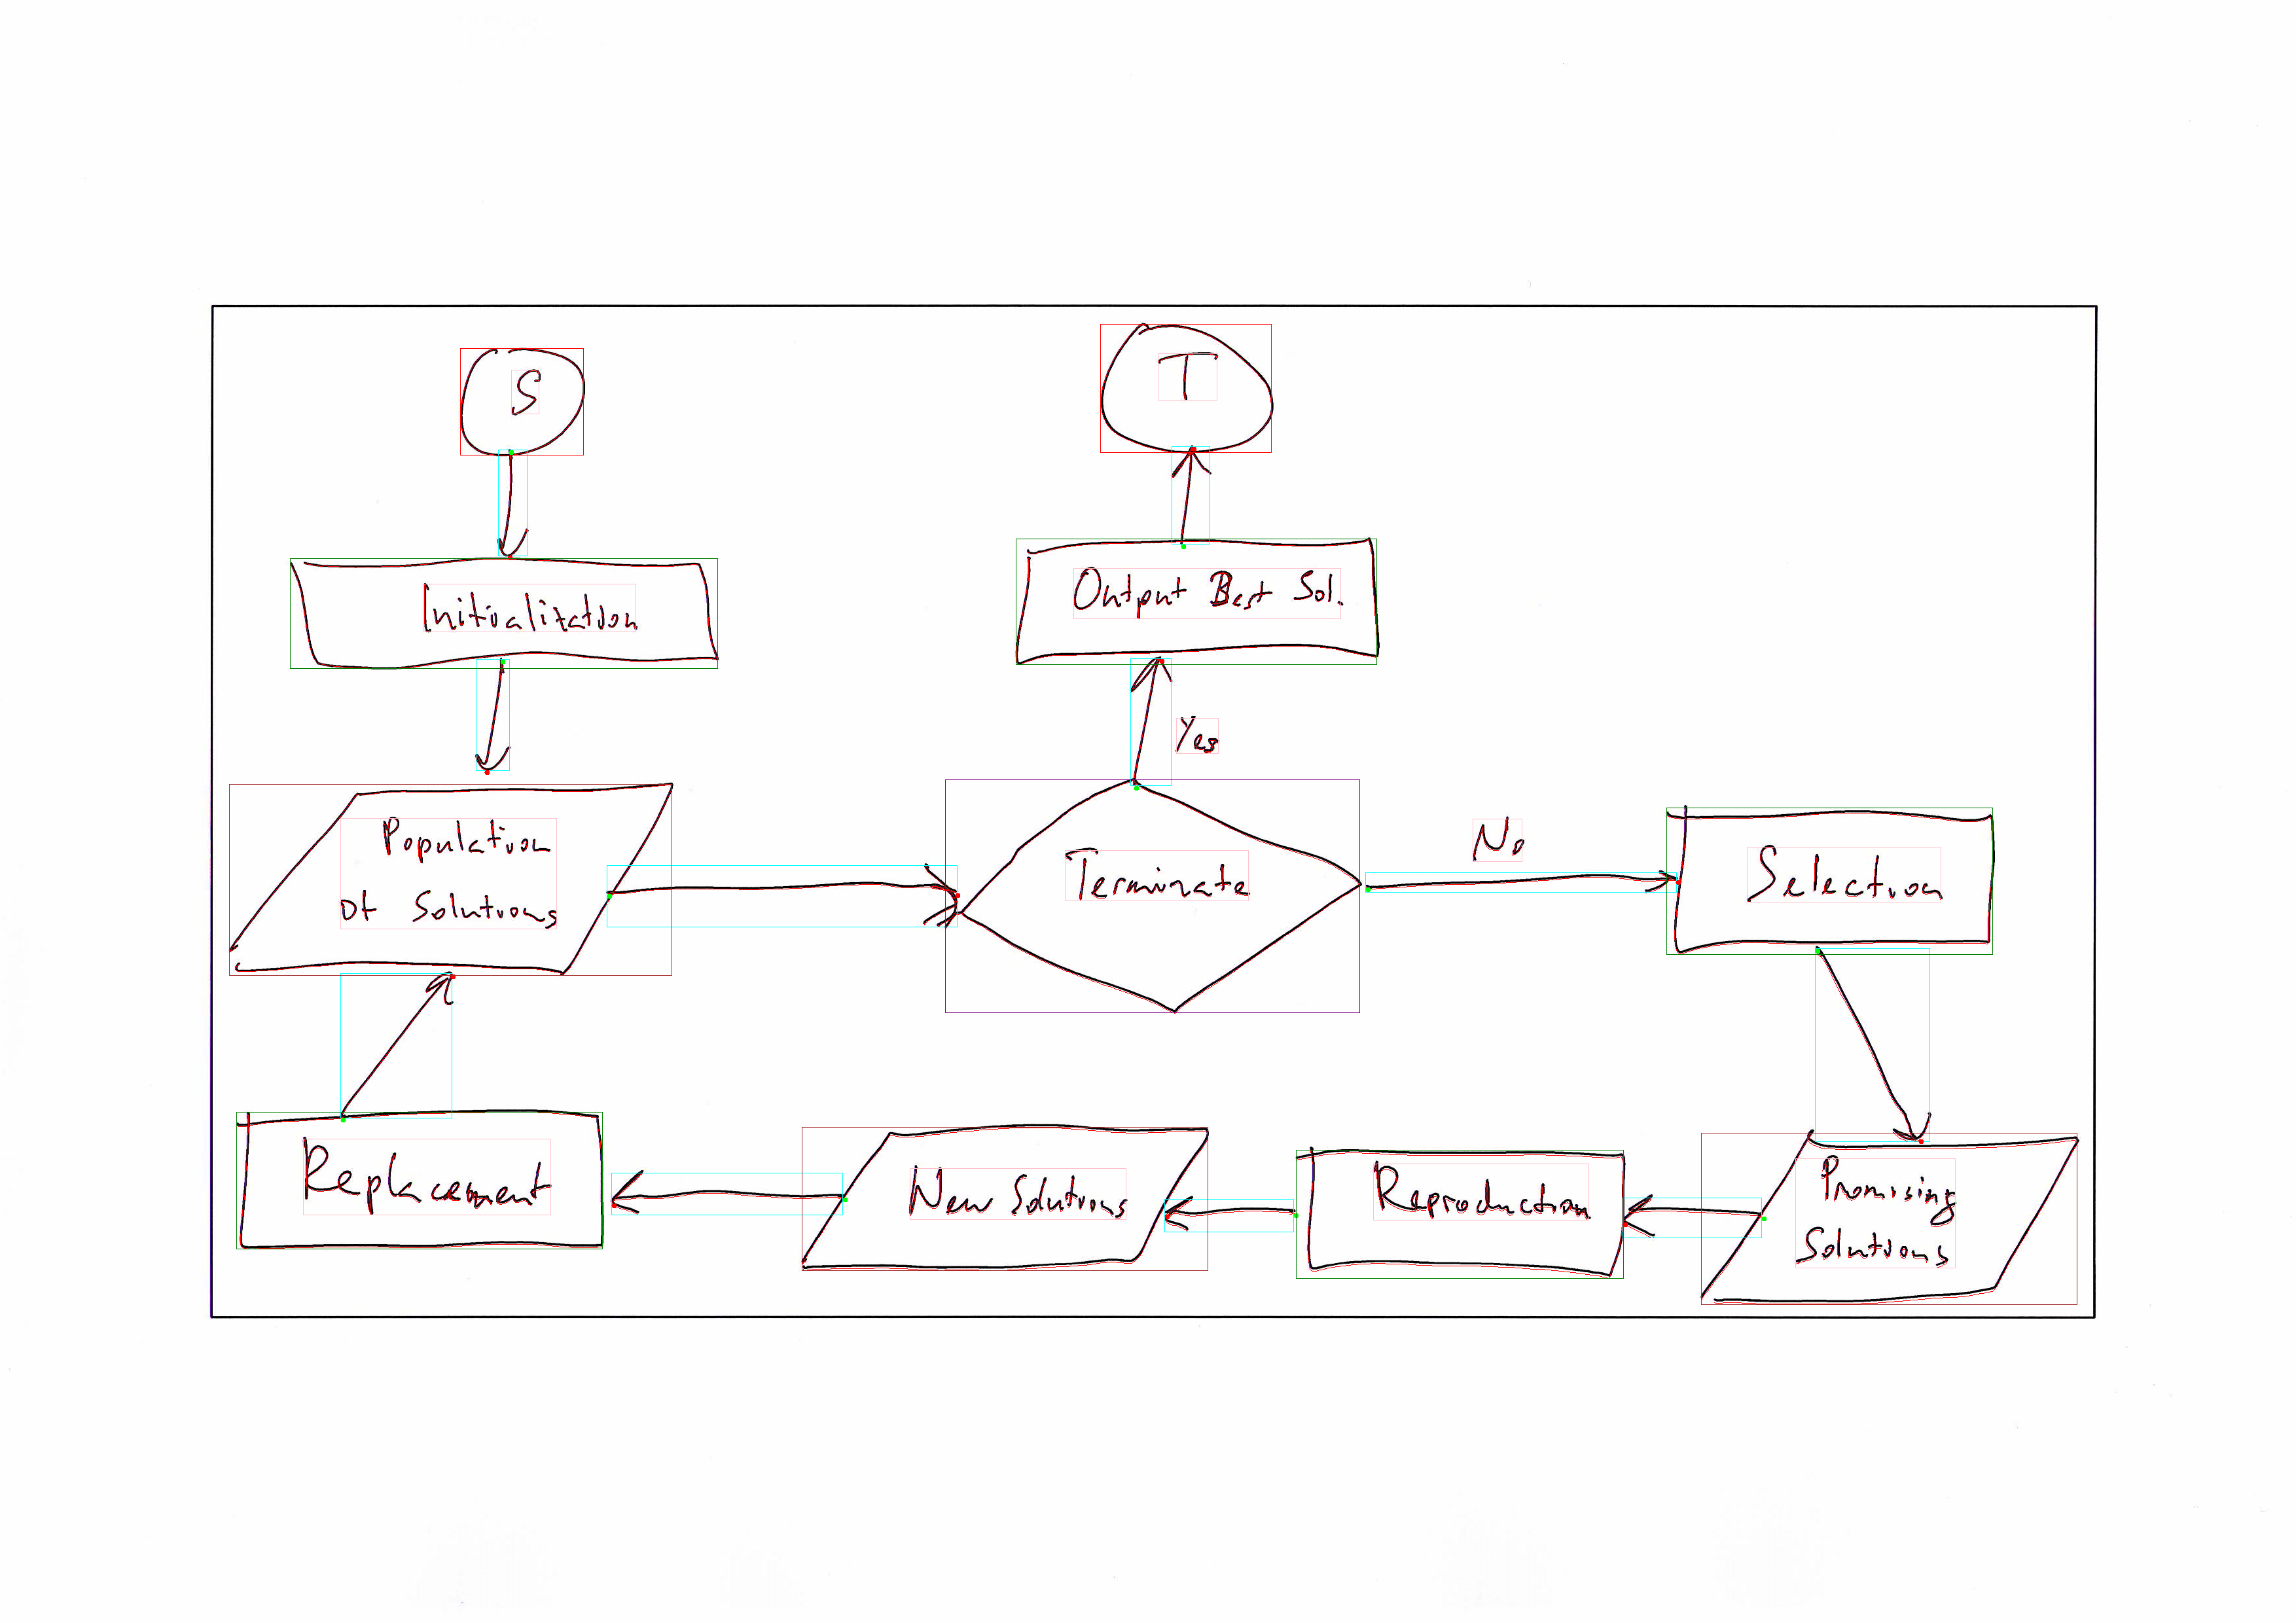 S
T
Initialization
Output Best Sol.
Yes
Population
of Solutions
Terminate
No
Selection
Replacement
New Solutions
Reproduction
Promising
Solutions